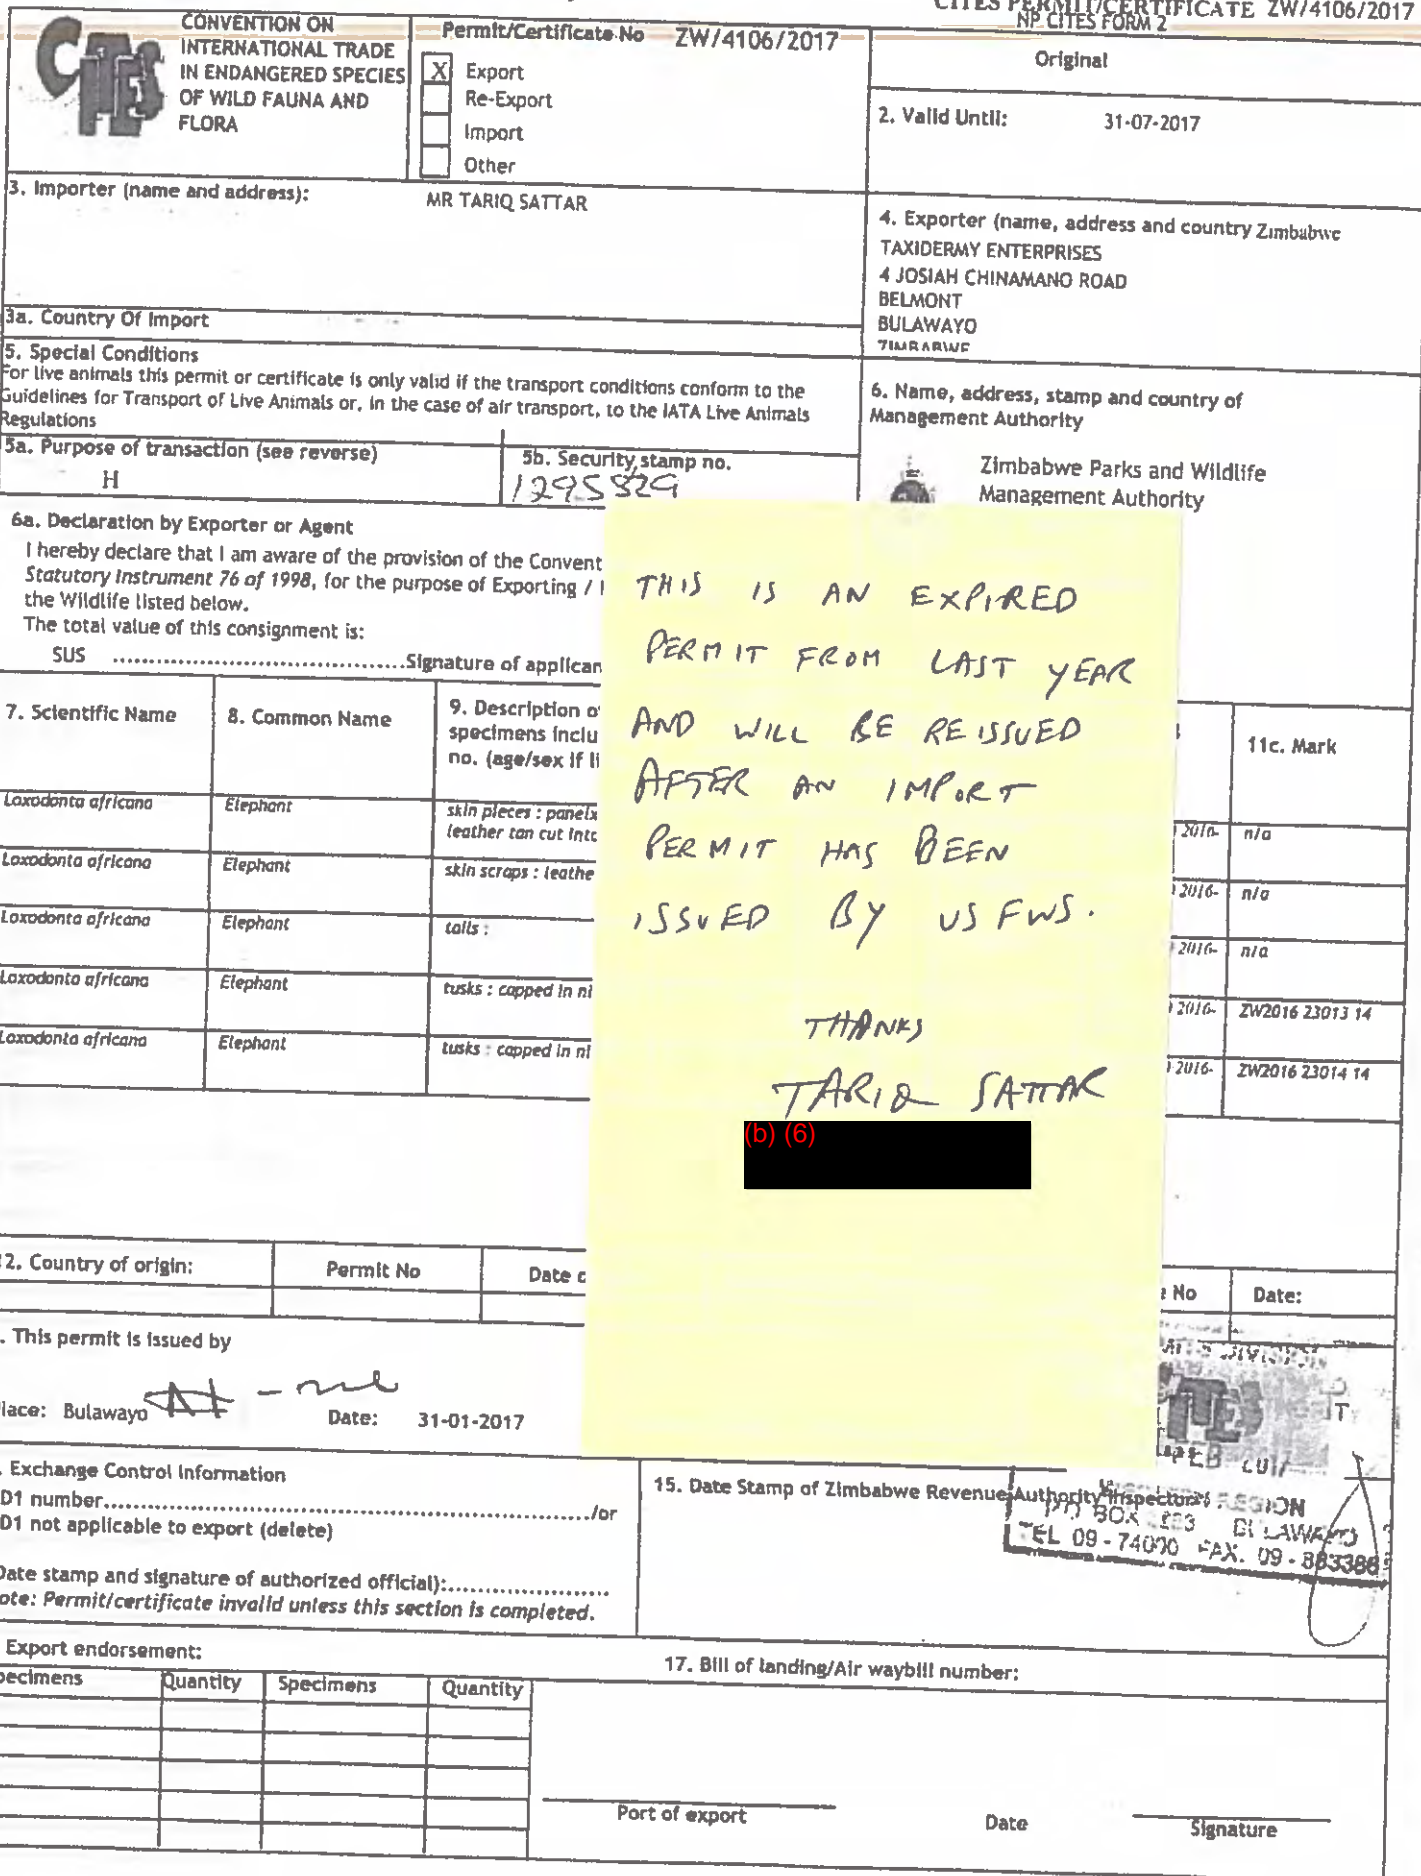 CITES PERMIT/CERTIFICATE ZW/4106/2017
NP CITES FORM 2
CITES
CONVENTION ON
INTERNATIONAL TRADE
IN ENDANGERED SPECIES
OF WILD FAUNA AND
FLORA
Permit/Certificate No ZW/4106/2017
X Export
Re-Export
Import
Other
Original
2. Valid Until: 31-07-2017
3. Importer (name and address): MR TARIQ SATTAR
4. Exporter (name, address and country Zimbabwe
TAXIDERMY ENTERPRISES
4 JOSIAH CHINAMANO ROAD
BELMONT
BULAWAYO
ZIMBABWE
3a. Country Of Import
5. Special Conditions
For live animals this permit or certificate is only valid if the transport conditions conform to the
Guidelines for Transport of Live Animals or, in the case of air transport, to the IATA Live Animals
Regulations
5a. Purpose of transaction (see reverse)
H
5b. Security stamp no.
1295829
6. Name, address, stamp and country of
Management Authority
Zimbabwe Parks and Wildlife
Management Authority
6a. Declaration by Exporter or Agent
I hereby declare that I am aware of the provision of the Convent
Statutory Instrument 76 of 1998, for the purpose of Exporting / I
the Wildlife listed below.
The total value of this consignment is:
SUS ....................................Signature of applican
7. Scientific Name
8. Common Name
9. Description o
specimens inclu
no. (age/sex if li
11c. Mark
Loxodonta africana Elephant skin pieces : panels
leather tan cut into
2016- n/a
Loxodonta africana Elephant skin scraps : leathe 2016- n/a
Loxodonta africana Elephant tails : 2016- n/a
Loxodonta africana Elephant tusks : capped in ni 2016- ZW2016 23013 14
Loxodonta africana Elephant tusks : capped in ni 2016- ZW2016 23014 14
THIS IS AN EXPIRED
PERMIT FROM LAST YEAR
AND WILL BE REISSUED
AFTER AN IMPORT
PERMIT HAS BEEN
ISSUED BY US FWS.
THANKS
TARIQ SATTAR
(b) (6)
12. Country of origin: Permit No Date o
e No Date:
. This permit is issued by
lace: Bulawayo Date: 31-01-2017
CITES
REGION
P.O BOX BULAWAYO
TEL 09 - 74000 FAX. 09 - 883388
. Exchange Control Information
D1 number................................................................/or
D1 not applicable to export (delete)
Date stamp and signature of authorized official):.....................
ote: Permit/certificate invalid unless this section is completed.
15. Date Stamp of Zimbabwe Revenue Authority Inspectors
Export endorsement:
pecimens Quantity Specimens Quantity
17. Bill of landing/Air waybill number:
Port of export Date Signature